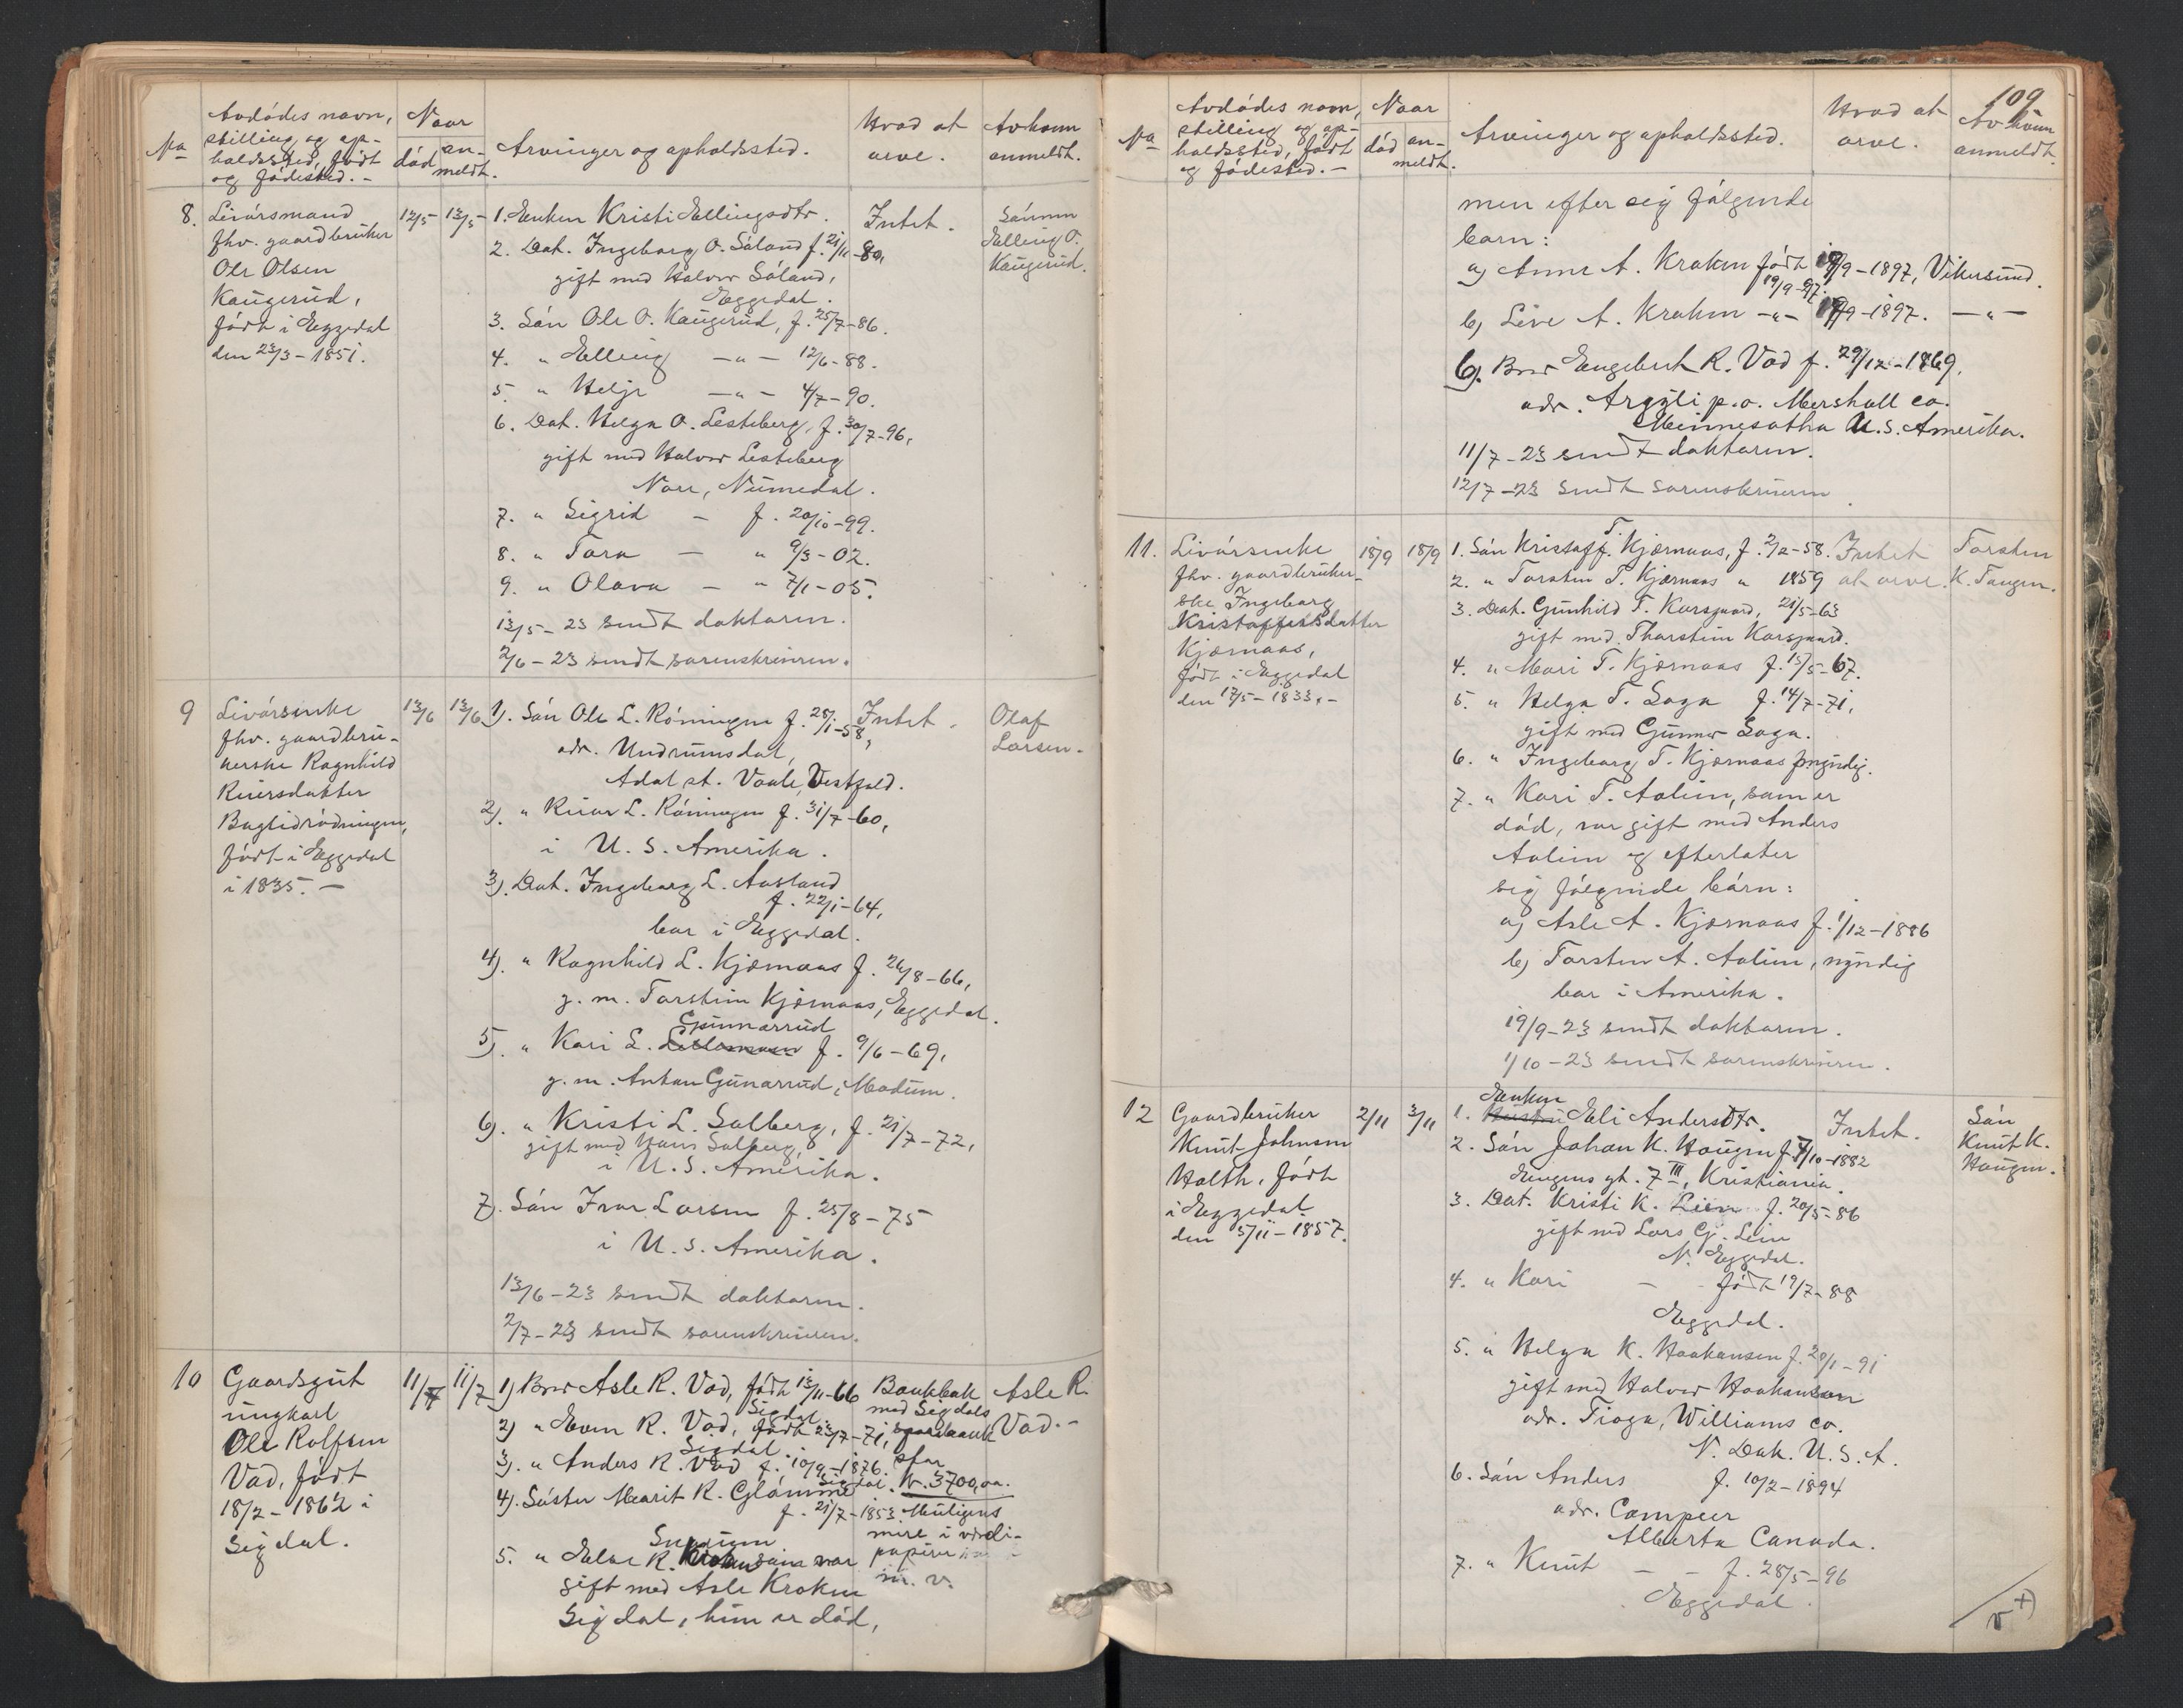 No
Avdödes navn,
stilling og op-
holdssted, född
og födested. -
Naar
död
an-
meldt.
Arvinger og opholdssted.
Hvad at
arve.
Av hvem
anmeldt.
8.
Livörsmand
fhv. gaardbruker
Ole Olsen
Kaugerud,
födt i Eggedal
den 23/3 - 1851.
12/5
13/5
1. Enken Kristi Ellingsdtr.
2. Dat. Ingeborg O. Söland f. 21/11 -80,
gift med Halvor Söland,
Eggedal.
3. Sön Ole O. Kaugerud, f. 25/7 -86.
4. " Elling -"- 12/6 -88.
5. " Helge -"- 4/7 -90.
6. Dat. Helga O. Lesteberg, f. 30/7 -96,
gift med Halvor Lesteberg
Nore, Numedal.
7. " Sigrid - f. 20/10 -99.
8. " Tora - " 9/3 - 02.
9. " Olava - " 7/1 - 05.
13/5 - 23 sendt doktoren.
2/6 - 23 sendt sorenskriveren.
Intet.
Sönnen
Elling O.
Kaugerud.
9
Livörsenke
fhv. gaardbru-
kerske Ragnhild
Reiersdatter
födt i Eggedal
i 1835. -
13/6
13/6
1). Sön Ole L. Röningen f. 28/1 -58,
adr. Undrumsdal,
Adal st. Vaale, Vestfold.
2). " Reiar L. Röningen f. 31/7 -60,
i U. S. Amerika.
3). Dat. Ingeborg L. Aasland
f. 22/1 -64,
bor i Eggedal.
4). " Ragnhild L. Kjörnaas f. 26/8 -66,
g. m. Torstein Kjörnaas, Eggedal.
Gunnarrud
5). " Kari L. f. 9/6 -69,
g. m. Anton Gunarrud, Modum.
6). " Kristi L. Solberg, f. 21/7 -72,
gift med Hans Solberg,
i U. S. Amerika.
7. Sön Ivar Larsen f. 25/8 - 75
i U. S. Amerika.
13/6 - 23 sendt doktoren.
2/7 - 23 sendt sorenskriveren.
Intet.
Olaf
Larsen.
10
Gaardsgut
ungkarl
Ole Rolfsen
Vad, födt
18/2 - 1862 i
Sigdal.
11/7
11/7
1) Bror Asle R. Vad, födt 13/11 -66
Sigdal
2) " Even R. Vad, födt 23/7 -71,
Sigdal.
3). " Anders R. Vad f. 10/9 -1876.
Sigdal.
4). Söster Marit R. Glömme
f. 21/7 -1853.
5. " R. var
gift med Asle Kroken
Sigdal, hun er död,
Bankbok
med Sigdals
sparebank
stor
kr. 3700,00.
Muligens
mere i verdi-
papirer
m. v.
Asle R.
Vad. -
109
No
Avdödes navn,
stilling og op-
holdssted, födt
og födested. -
Naar
död
an-
meldt.
Arvinger og opholdssted.
Hvad at
arve.
Av hvem
anmeldt.
men efter sig fölgende
barn:
a) Anne A. Kroken födt 19/9 - 1897, Vikersund.
19/9 -97.
b) Live A. Kroken -"- 19/9 -1897. -"-
6). Bror Engebret R. Vad f. 29/12 -1869,
adr. Argyli p.o. Mershall co.
Minnesotha U.S. Amerika.
11/7 - 23 sendt doktoren.
12/7 - 23 sendt sorenskriveren.
11.
Livörsenke
fhv. gaardbruker-
ske Ingeborg
Kristoffersdatter
Kjörnaas,
födt i Eggedal
den 17/5 - 1833. -
18/9
18/9
1. Sön Kristoff. T. Kjörnaas, f. 2/2 -58.
2. " Torsten T. Kjörnaas " 1859
3. Dat. Gunhild T. Korsgaard, 21/5 -63
gift med Thorstein Korsgaard.
4. " Mari T. Kjörnaas f. 15/5 -67.
5. " Helga T. Saga f. 14/7 -71,
gift med Gunner Saga.
6. " Ingeborg T. Kjörnaas myndig.
7. " Kari T. Aalien, som er
död, var gift med Anders
Aalien og efterlater
sig fölgende börn:
a) Asle A. Kjörnaas f. 1/12 -1886
b) Torsten A. Aalien, myndig
bor i Amerika.
19/9 -23 sendt doktoren.
1/10 - 23 sendt sorenskriveren.
Intet
at arve.
Torsten
K. Taugen.
12
Gaardbruker
Knut Johnsen
Holth, födt
i Eggedal
den 5/11 - 1857.
2/11
3/11
Enken
1. Eli Andersdtr.
2. Sön Johan K. Haugen f. 7/10 -1882
Eugens gt. 7 III, Kristiania.
3. Dat. Kristi K. Lien f. 20/5 -86
gift med Lars Gj. Lein
N. Eggedal.
4. " Kari - födt 19/7 -88
Eggedal.
5. " Helga K. Haakansen f. 20/1 -91
gift med Halvor Haakansen
adr. Tioga, Williams co.
N. Dak. U. S. A.
6. Sön Anders f. 10/2 - 1894
adr. Compeer
Alberta Canada.
7. " Knut - - f. 28/5 -96
Eggedal.
Intet.
Sön
Knut K.
Haugen.